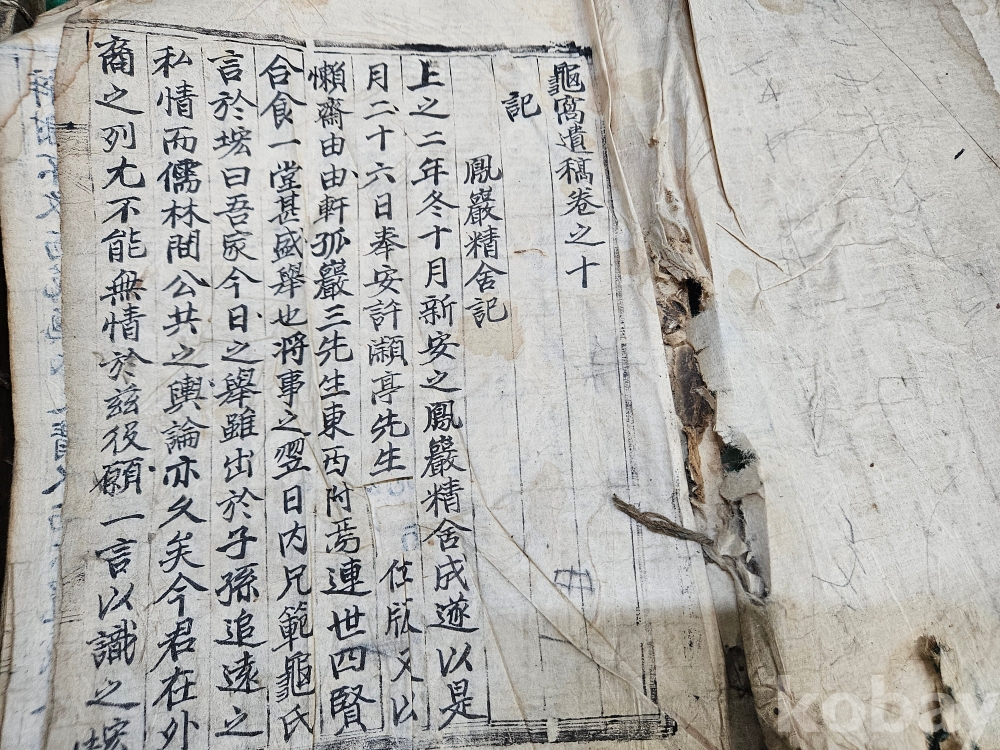 龜窩遺稿卷之十
記
鳳巖精舍記
上之二年冬十月新安之鳳巖精舍成遂以是
月二十六日奉安許灝亭先生位版又以
懶齋由由軒孤巖三先生東西附焉連世四賢
合食一堂甚盛舉也將事之翌日內兄範龜氏
言於垵曰吾家今日之舉雖出於子孫追遠之
私情而儒林間公共之輿論亦久矣今君在外
裔之列尤不能無情於玆役願一言以識之
kobay